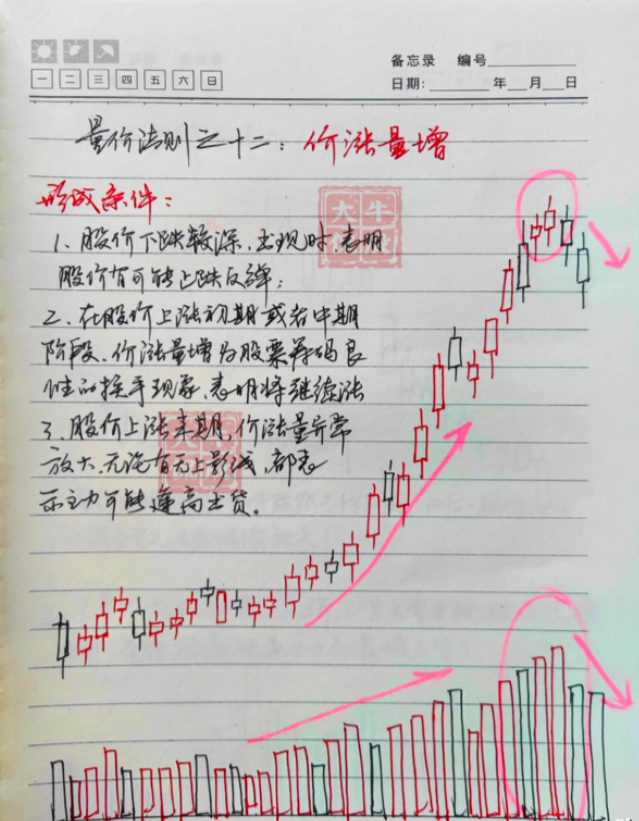 备忘录 编号
一 二 三 四 五 六 日
日期: 年 月 日
量价法则之十二：价涨量增
形成条件：
1、股价下跌较深，出现时，表明
股价有可能止跌反弹；
2、在股价上涨初期或者中期
阶段，价涨量增为股票筹码良
性的换手现象，表明将继续涨
3、股价上涨末期，价涨量异常
放大，无论有无上影线，都表
示主力可能逢高出货。
大牛